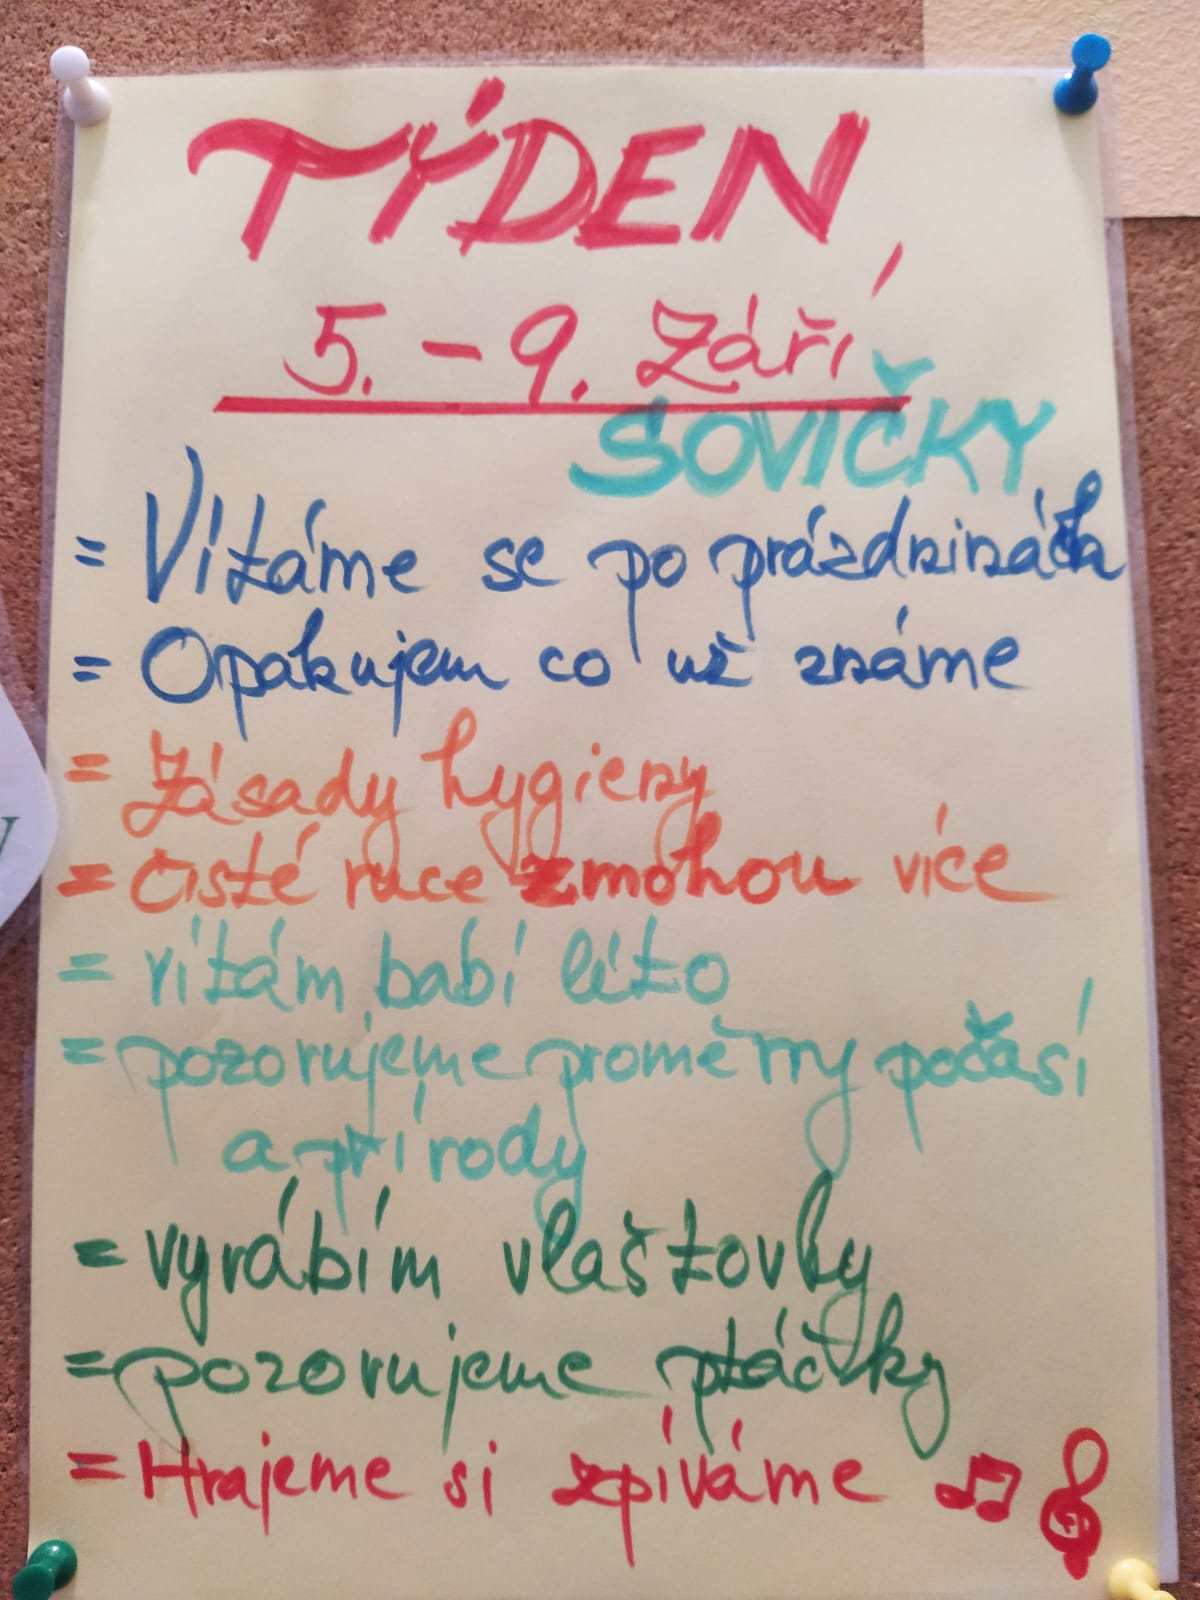 TÝDEN
5. - 9. Září
SOVIČKY
= Vítáme se po prázdninách
= Opakujem co už známe
= Zásady hygieny
= čisté ruce zmohou více
= vítám babí léto
= pozorujeme proměny počasí
a přírody
= vyrábím vlaštovky
= pozorujeme ptáčky
= Hrajeme si zpíváme